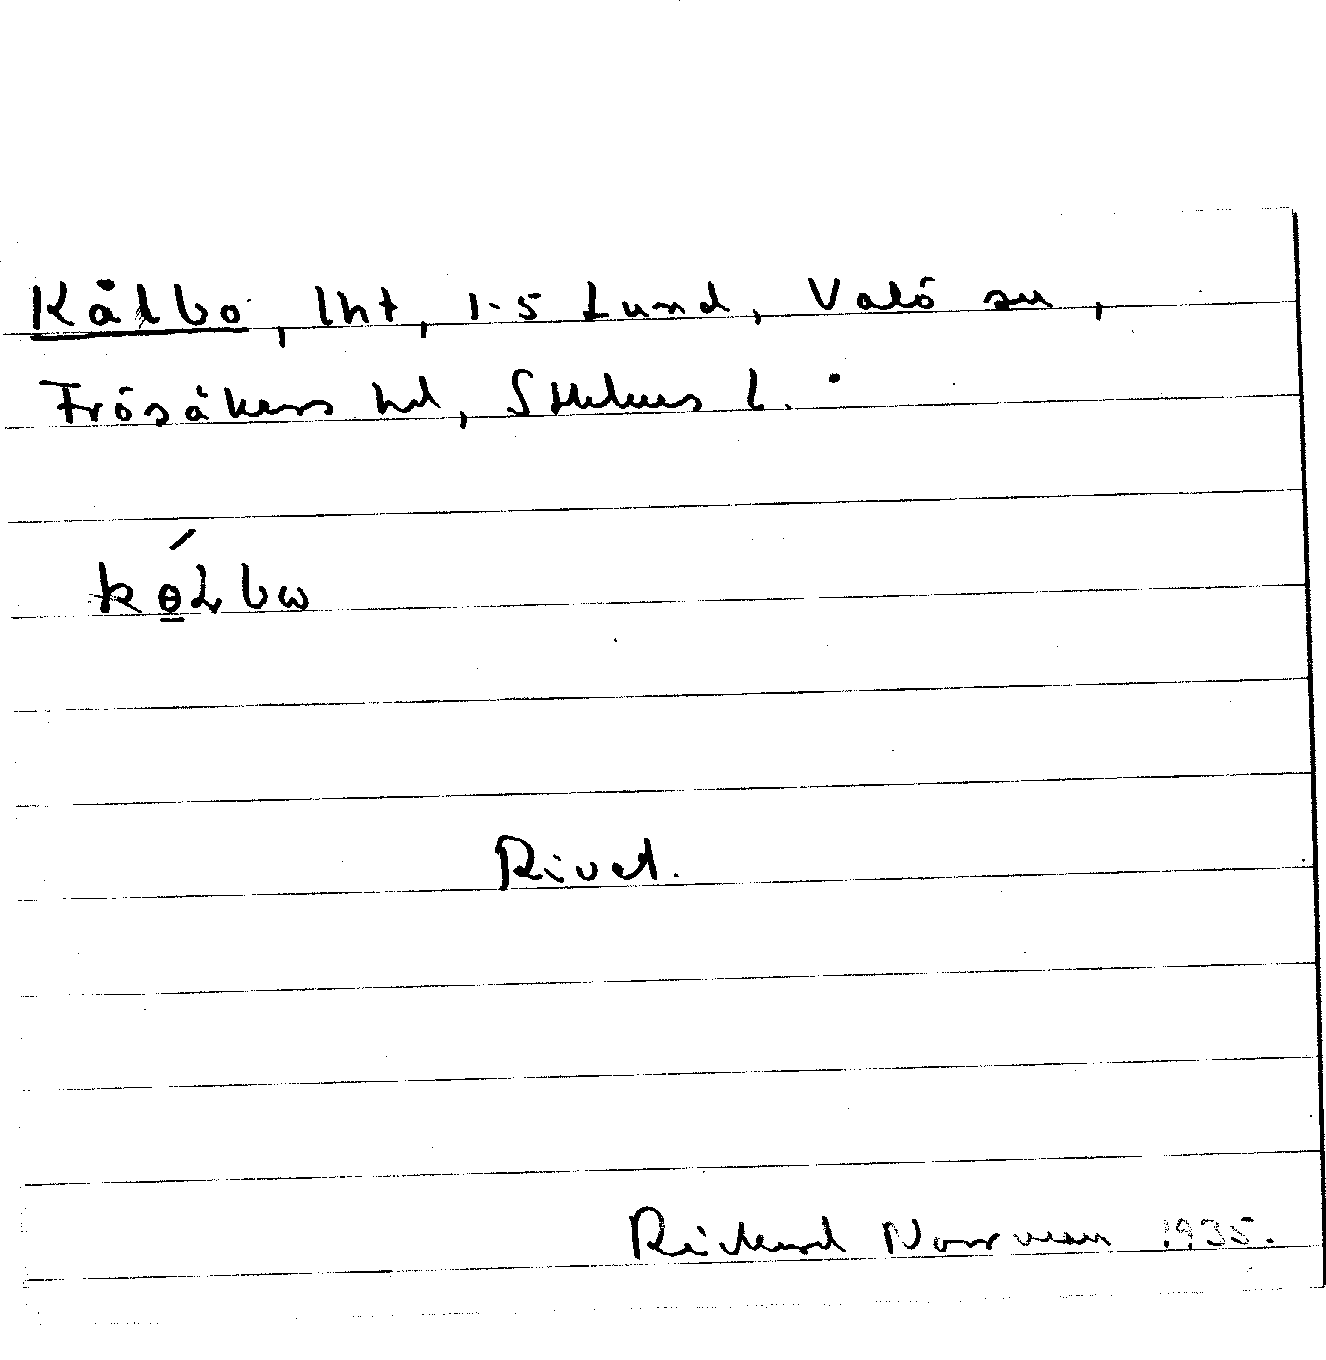 Kålbo, lht, 1-5 Lund, Valö sn,
Frösåkers hd, Sthlms l.
kɵ́Lbω
Rivet.
Rickard Norrman 1935.